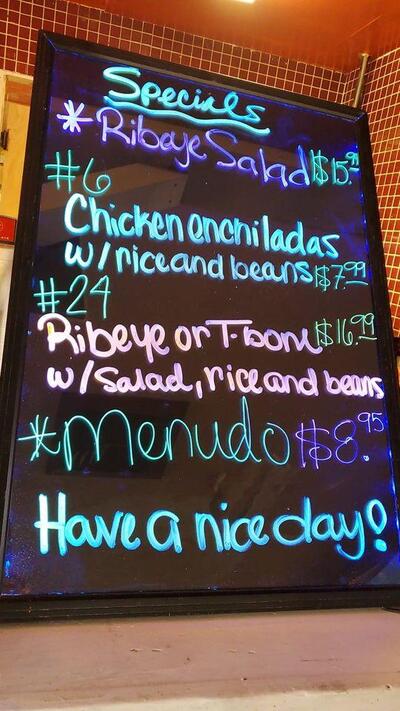 Specials
*Ribeye Salad $15.99
#6
Chicken enchiladas
w/rice and beans $7.99
#24
Ribeye or T-bone $16.99
w/Salad, rice and beans
*menudo $8.95
Have a nice day!